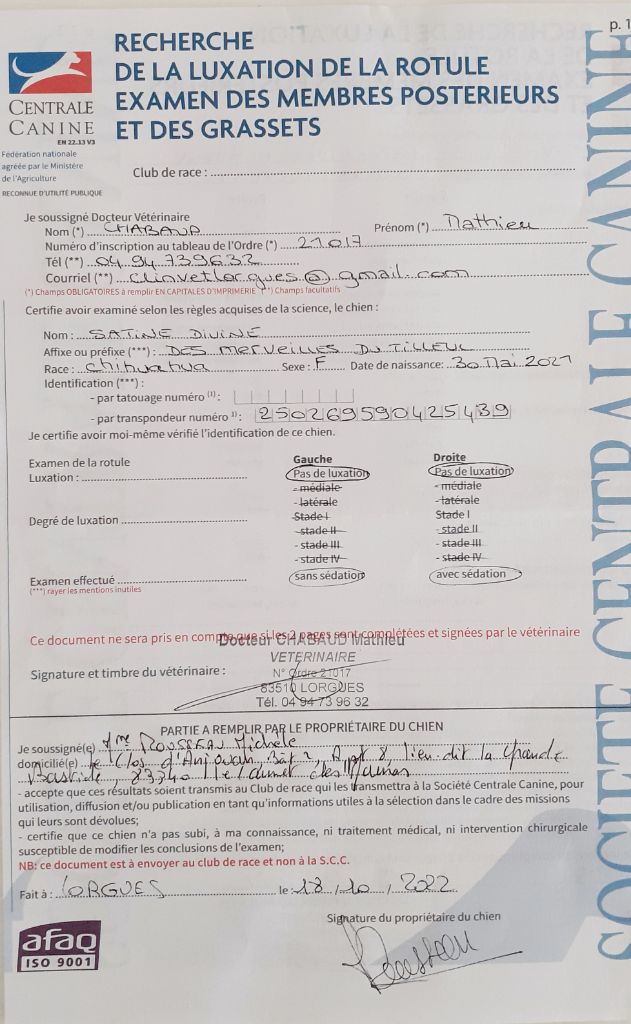 p. 1
RECHERCHE
DE LA LUXATION DE LA ROTULE
EXAMEN DES MEMBRES POSTERIEURS
ET DES GRASSETS
CENTRALE
CANINE
EN 22.13 V3
Fédération nationale
agréée par le Ministère
de l'Agriculture
RECONNUE D'UTILITÉ PUBLIQUE
SOCIETE CENTRALE CANINE
Club de race :
Je soussigné Docteur Vétérinaire
Nom (*) CHABAUD Prénom (*) Mathieu
Numéro d'inscription au tableau de l'Ordre (*) 21017
Tél (**) 04 94 739632
Courriel (**) clinvetlorgues@gmail.com
(*) Champs OBLIGATOIRES à remplir EN CAPITALES D'IMPRIMERIE (**) Champs facultatifs
Certifie avoir examiné selon les règles acquises de la science, le chien :
Nom : SATINE DIVINE
Affixe ou préfixe (***) : DES MERVEILLES DU TILLEUL
Race : Chihuahua Sexe : F Date de naissance: 30 Mai 2021
Identification (***) :
- par tatouage numéro (1) :
- par transpondeur numéro 1) : 250269590425439
Je certifie avoir moi-même vérifié l'identification de ce chien.
Examen de la rotule Gauche Droite
Luxation : Pas de luxation Pas de luxation
- médiale - médiale
- latérale - latérale
Degré de luxation Stade I Stade I
- stade II - stade II
- stade III - stade III
- stade IV - stade IV
Examen effectué sans sédation avec sédation
(***) rayer les mentions inutiles
Ce document ne sera pris en compte que si les 2 pages sont complétées et signées par le vétérinaire
Docteur CHABAUD Mathieu
VETERINAIRE
Signature et timbre du vétérinaire : N° Ordre 21017
83510 LORGUES
Tél. 04 94 73 96 32
PARTIE A REMPLIR PAR LE PROPRIÉTAIRE DU CHIEN
Je soussigné(e) Mme Rousseau Michèle
domicilié(e) le Clos d'Anjouan, Bât 2, Appt 8, lieu dit la Grande
Bastide, 83340 le Cannet des Maures
- accepte que ces résultats soient transmis au Club de race qui les transmettra à la Société Centrale Canine, pour
utilisation, diffusion et/ou publication en tant qu'informations utiles à la sélection dans le cadre des missions
qui leurs sont dévolues;
- certifie que ce chien n'a pas subi, à ma connaissance, ni traitement médical, ni intervention chirurgicale
susceptible de modifier les conclusions de l'examen;
NB: ce document est à envoyer au club de race et non à la S.C.C.
Fait à : LORGUES le : 18/10/2022
Signature du propriétaire du chien
Rousseau
afaq
ISO 9001